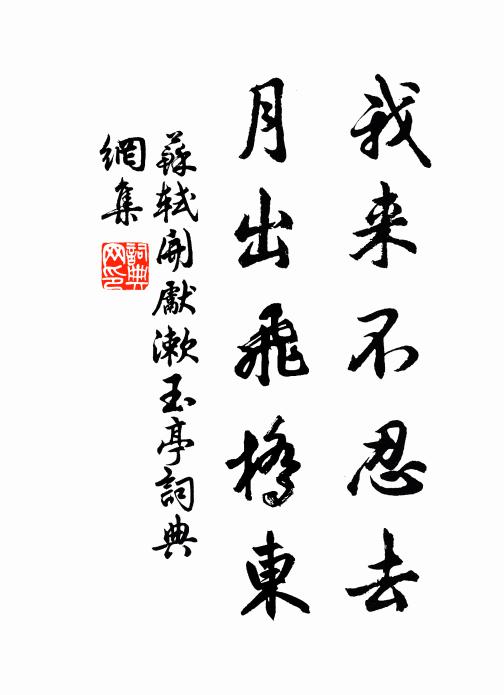 我来不忍去
月出飛橋東
蘇軾開獻漱玉亭詞典
網集
詞典
网印